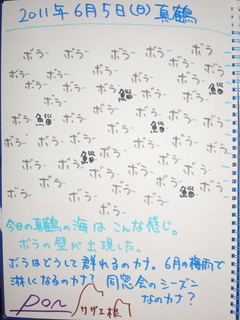 2011年6月5日(日)真鶴
ボラ ボラ ボラ ボラ ボラ
ボラ ボラ ボラ ボラ ボラ
ボラ ボラ ボラ ボラ ボラ
ボラ ボラ 鯔 ボラ ボラ 鯔
ボラ ボラ ボラ ボラ ボラ
ボラ 鯔 ボラ ボラ 鯔 ボラ
ボラ ボラ ボラ 鯔 ボラ
ボラ ボラ ボラ ボラ ボラ
ボラ 鯔 ボラ ボラ ボラ
ボラ ボラ ボラ ボラ ボラ
今日の真鶴の海はこんな感じ。
ボラの壁が出現した。
ボラはどうして群れるのカナ。6月の梅雨で
淋しくなるのカナ? 同窓会のシーズン
なのカナ?
pon
サザエ根